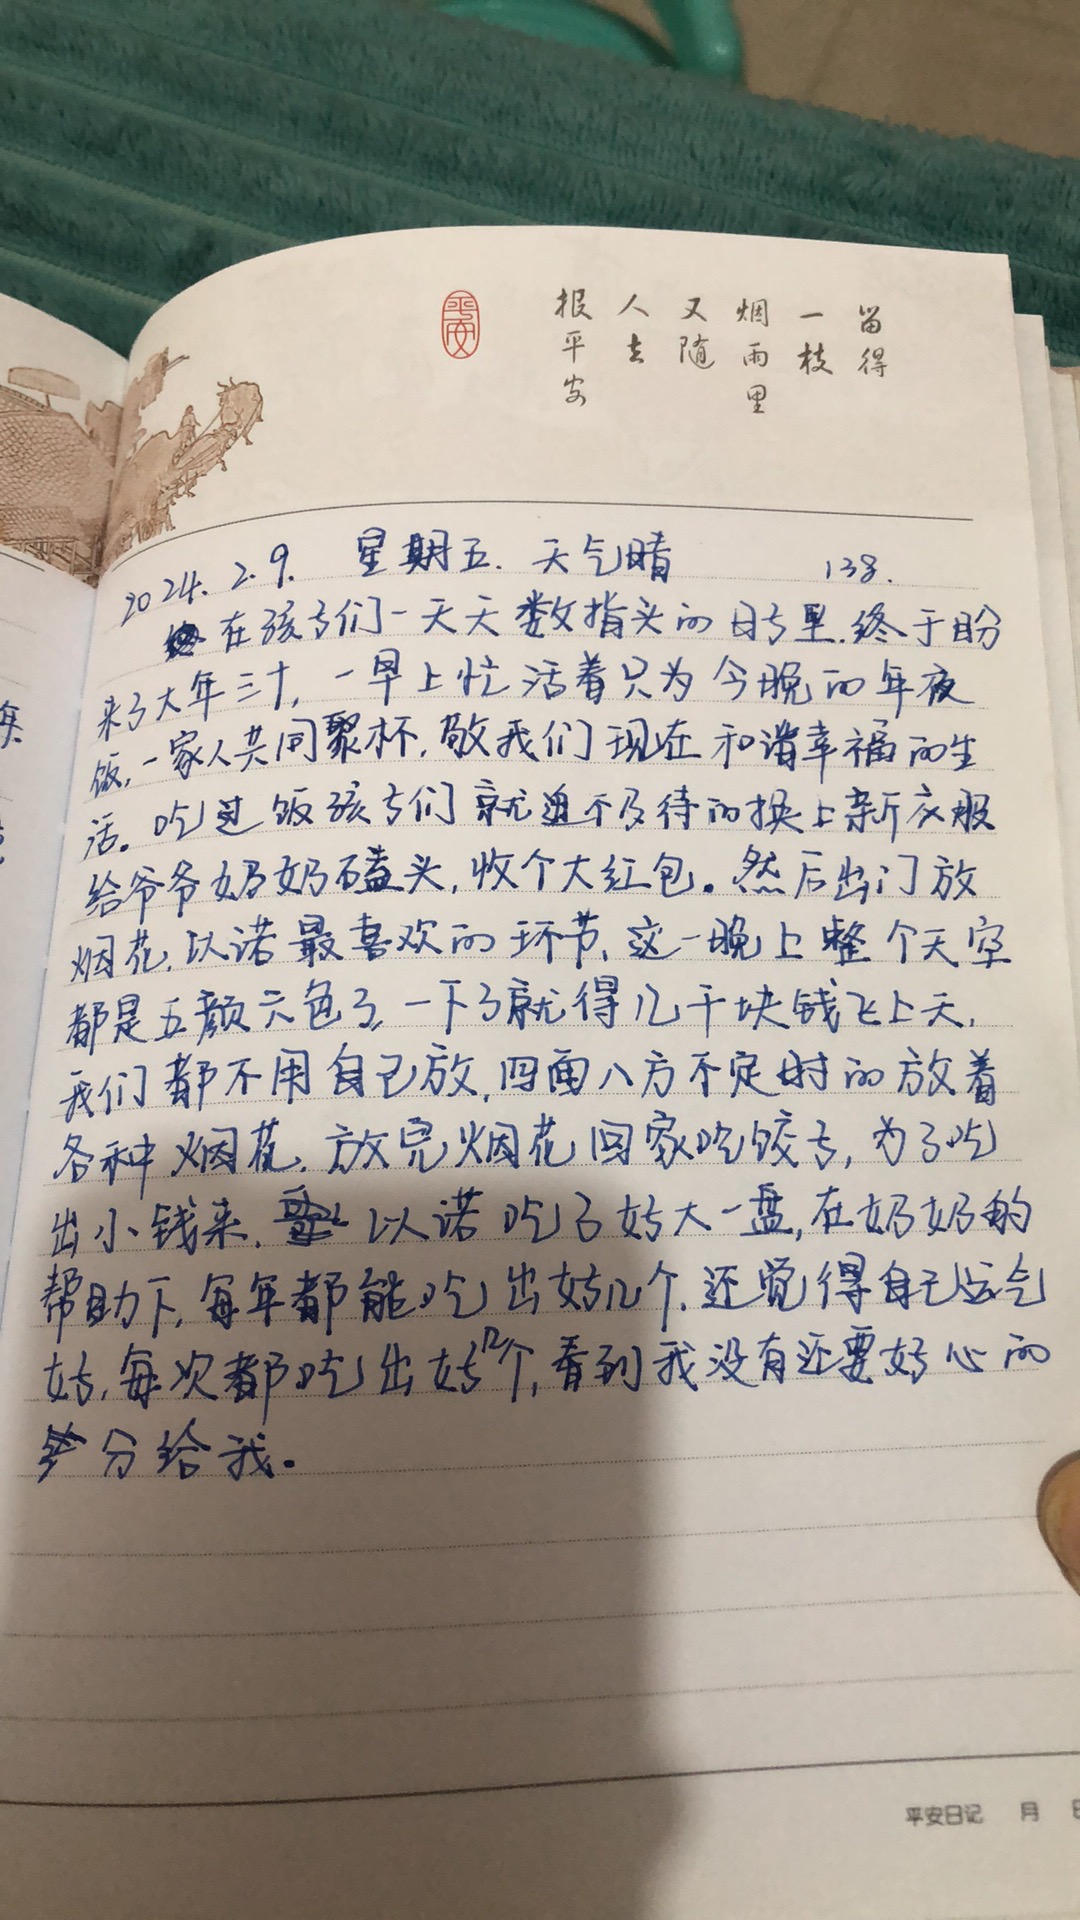 留得
一枝
烟雨里
又随
人去
报平安
平安
2024.2.9. 星期五. 天气晴 138.
在孩子们一天天数指头的日子里.终于盼
来了大年三十,一早上忙活着只为今晚的年夜
饭,一家人共同聚杯,敬我们现在和谐幸福的生
活。吃过饭孩子们就迫不及待的换上新衣服
给爷爷奶奶磕头,收个大红包。然后出门放
烟花,以诺最喜欢的环节,这一晚上整个天空
都是五颜六色了,一下子就得几千块钱飞上天,
我们都不用自己放,四面八方不定时的放着
各种烟花.放完烟花回家吃饺子,为了吃
出小钱来,以诺吃了好大一盘,在奶奶的
帮助下,每年都能吃出好几个,还觉得自己运气
好,每次都吃出好几个,看到我没有还要好心的
分给我。
平安日记 月 日